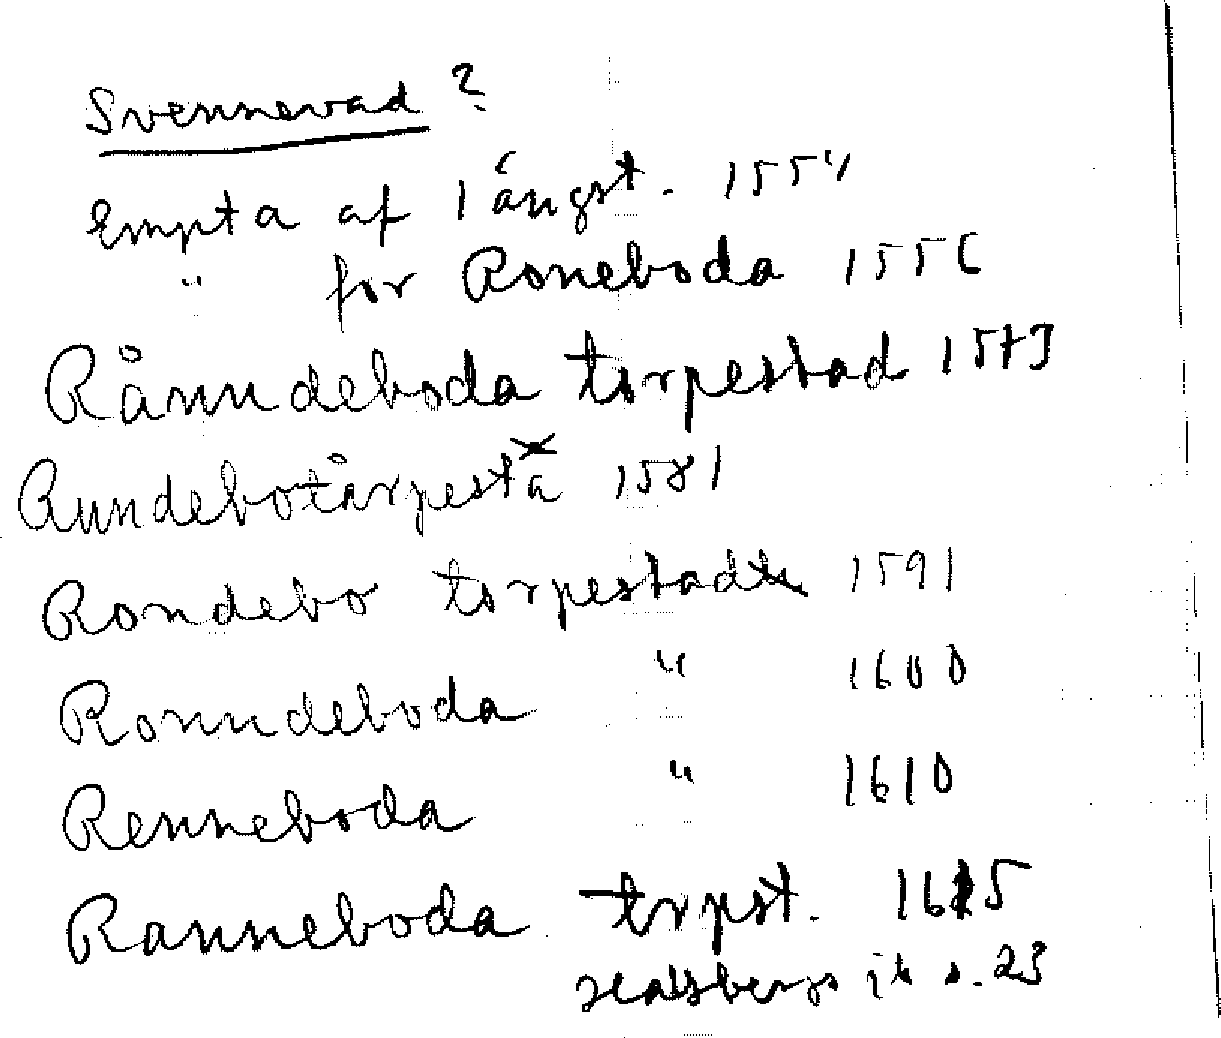 Svennevad ?
Empta af 1 ängst. 1554
" for Roneboda 1556
Rånndeboda torpestad 1573
Runndebotårpestä 1581
Rondebo torpestad 1591
Ronndeboda " 1600
Renneboda " 1610
Ranneboda torpst. 1615
Hallsbergs s. 23